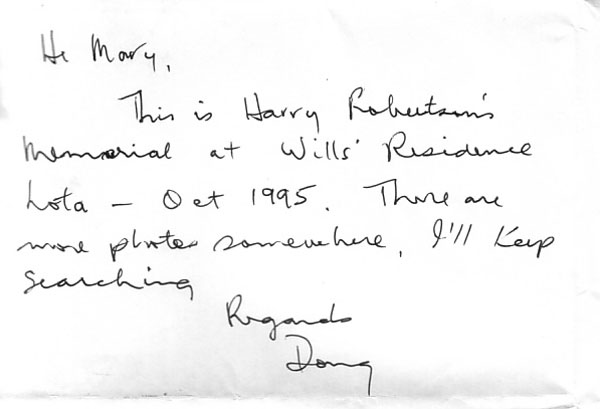 Hi Mary,
This is Harry Robertson's
Memorial at Wills' Residence
Lota – Oct 1995. There are
more photos somewhere, I'll keep
searching
Regards
Doug